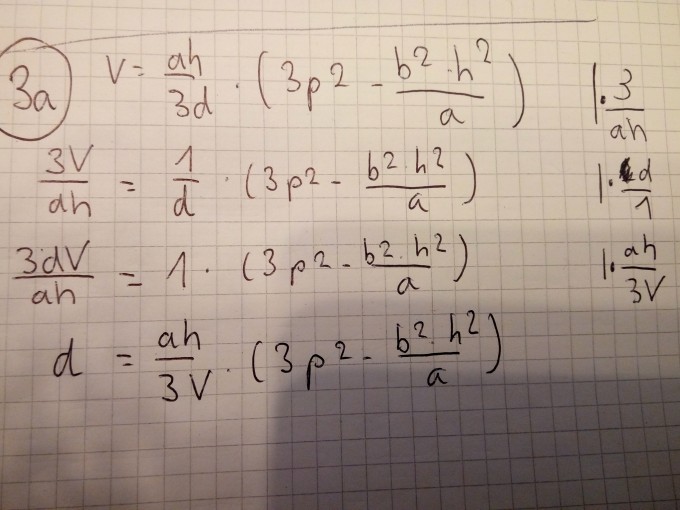 3a V = ah/3d · (3p² - b²·h²/a) |· 3/ah
3V/ah = 1/d · (3p² - b²·h²/a) |· d/1
3dV/ah = 1 · (3p² - b²·h²/a) |· ah/3V
d = ah/3V · (3p² - b²·h²/a)